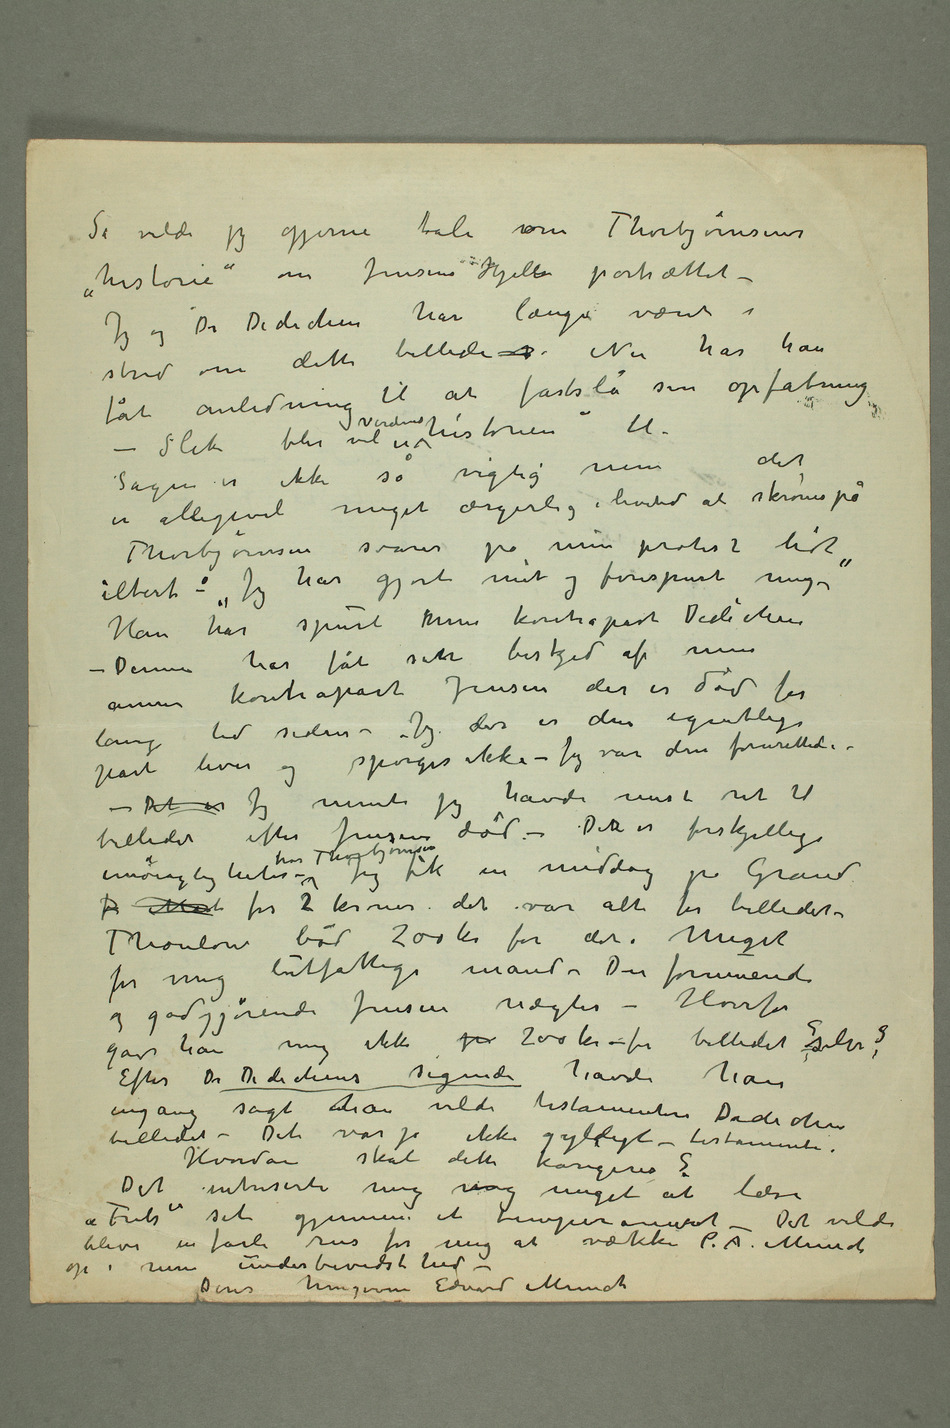 Så vilde jg gjerne tale om Thorbjørnsens
„historie“ om Jensens Hjell portrættet –
Jg og Dr Dedichen har længe været i
strid om dette billede. Nu har han
fåt anledning til at fastslå sin opfatning
– Slik blir vel verdenshistorien til.
Sagen er ikke så vigtig men det
er alligevel meget ærgerlig i livetid at skrønes på
Thorbjørnsen svarer på min protest lidt
iltert – „Jg har gjort mit og forespurt mig–“
Han har spurt min kontrapart Dedichen
– Denne har fåt sin beskjed af min
annen kontrapart Jensen der er død for
lang tid siden – Jg der er den egentlige
part lever og spørges ikke – Jg var den forurettede –
– Det er Jg mente jg havde mest ret til
billedet efter Jensens død – Det er forskjellige
umöigligheter hos Thorbjørnsen – Jeg fik en middag på Grand
for 2 kroner. det var alt for billedet –
Thaulow bød 200 kr for det. Meget
for mig lutfattige mand – Den formuende
og godgjørende Jensen nægter – Hvorfor
gav han mig ikke 200 kr – for billedet selv?
Efter Dr Dedichens sigende havde han
engang sagt han vilde testamentere Dedichen
billedet – Det var jo ikke gyldigt – testamente.
Hvordan skal dette korrigeres?
Det intreserte mig meget at læse
„Frits“ set gjennem et temperament – Det vilde
blive en farlig rus for mig at vække P. A. Munch
op i min underbevidsthed –
Deres hengivne Edvard Munch